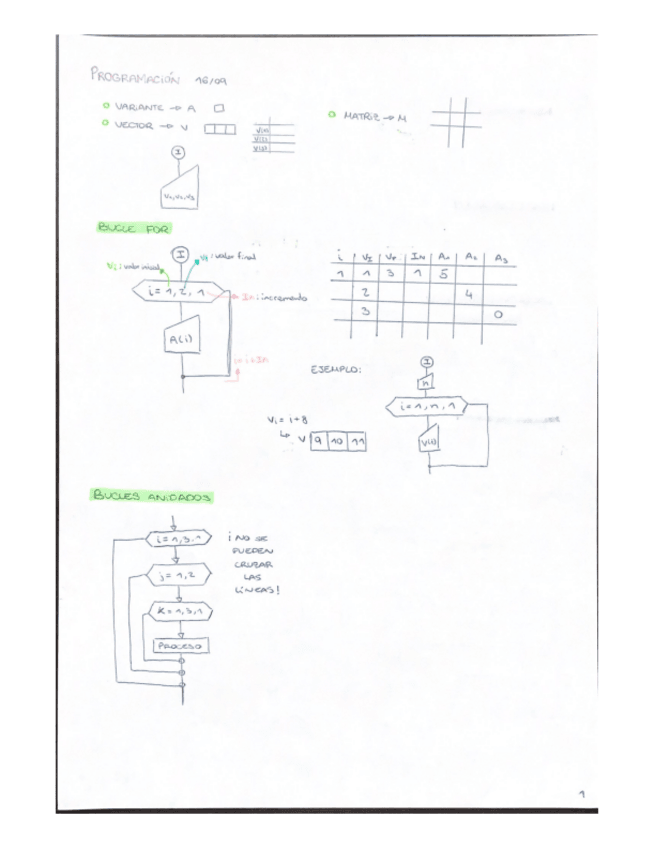 PROGRAMACIÓN 16/09
○ VARIANTE → A
○ VECTOR → V
V(1)
V(2)
V(3)
○ MATRIZ → M
I
V1, V2, V3
BUCLE FOR
I
Vi: valor inicial
Vf: valor final
i = 1, 2, 1
In: incremento
A(i)
i = i + In
i VI VF IN A1 A2 A3
1 1 3 1 5
2 4
3 0
EJEMPLO:
I
n
i = 1, n, 1
V(i)
Vi = i+8
↳ V 9 10 11
BUCLES ANIDADOS
i = 1, 3, 1
j = 1, 2
K = 1, 3, 1
PROCESO
¡NO SE
PUEDEN
CRUZAR
LAS
LÍNEAS!
1